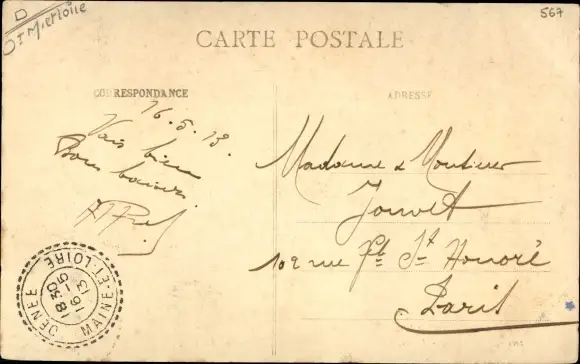 D
567
CARTE POSTALE
CORRESPONDANCE
ADRESSE
16.5.13.
Vais bien
Bon baiser
Madame & Monsieur
Jouvet
102 rue Fg St Honoré
Paris
DENEE
MAINE-ET-LOIRE
8 30
16 -5
13